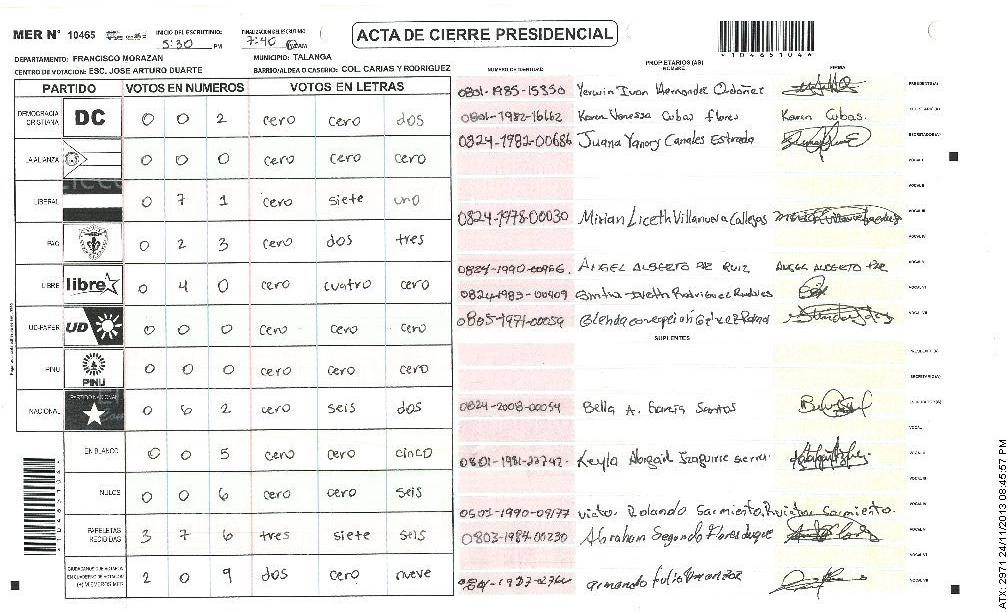 MER N° 10465
INICIO DEL ESCRUTINIO:
5:30 PM
FINALIZACION DEL ESCRUTINIO
7:40
ACTA DE CIERRE PRESIDENCIAL
DEPARTAMENTO: FRANCISCO MORAZAN
MUNICIPIO: TALANGA
CENTRO DE VOTACION: ESC. JOSE ARTURO DUARTE
BARRIO/ALDEA O CASERIO: COL. CARIAS Y RODRIGUEZ
PARTIDO VOTOS EN NUMEROS VOTOS EN LETRAS
DEMOCRACIA CRISTIANA DC 0 0 2 cero cero dos
LA ALIANZA 0 0 0 cero cero cero
LIBERAL 0 7 1 cero siete uno
PAC 0 2 3 cero dos tres
LIBRE libre 0 4 0 cero cuatro cero
UD-FAPER UD 0 0 0 cero cero cero
PINU PINU 0 0 0 cero cero cero
NACIONAL PARTIDO NACIONAL 0 6 2 cero seis dos
EN BLANCO 0 0 5 cero cero cinco
NULOS 0 0 6 cero cero seis
PAPELETAS RECIBIDAS 3 7 6 tres siete seis
2 0 9 dos cero nueve
*10465104*
NUMERO DE IDENTIDAD
PROPIETARIOS (AS)
NOMBRE
FIRMA
0801-1985-15350 Yerwin Ivan Hernandez Ordoñez
PRESIDENTE(A)
0801-1982-16162 Karen Vanessa Cubas flores Karen Cubas.
SECRETARIO(A)
0824-1982-00686 Juana Yanory Canales Estrada
ESCRUTADOR(A)
VOCAL I
VOCAL II
0824-1978-00030 Mirian Liceth Villanueva Callejas
VOCAL III
VOCAL IV
0824-1990-00966. ANGEL ALBERTO PAZ RUIZ ANGEL ALBERTO PAZ
VOCAL V
0824-1983-00409
VOCAL VI
0805-1971-00059
VOCAL VII
SUPLENTES
PRESIDENTE (A)
SECRETARIO(A)
0824-2008-00054 Bella A. Garcia Santos
ESCRUTADOR(A)
VOCAL I
Keyla Abigail Izaguirre sierra.
VOCAL II
VOCAL III
victor Rolando Sarmiento victor Sarmiento.
VOCAL IV
0803-1984-00230 Abraham Segundo Flores duque
VOCAL V
VOCAL VI
armando
VOCAL VII
ATX: 2971 24/11/2013 08:45:57 PM